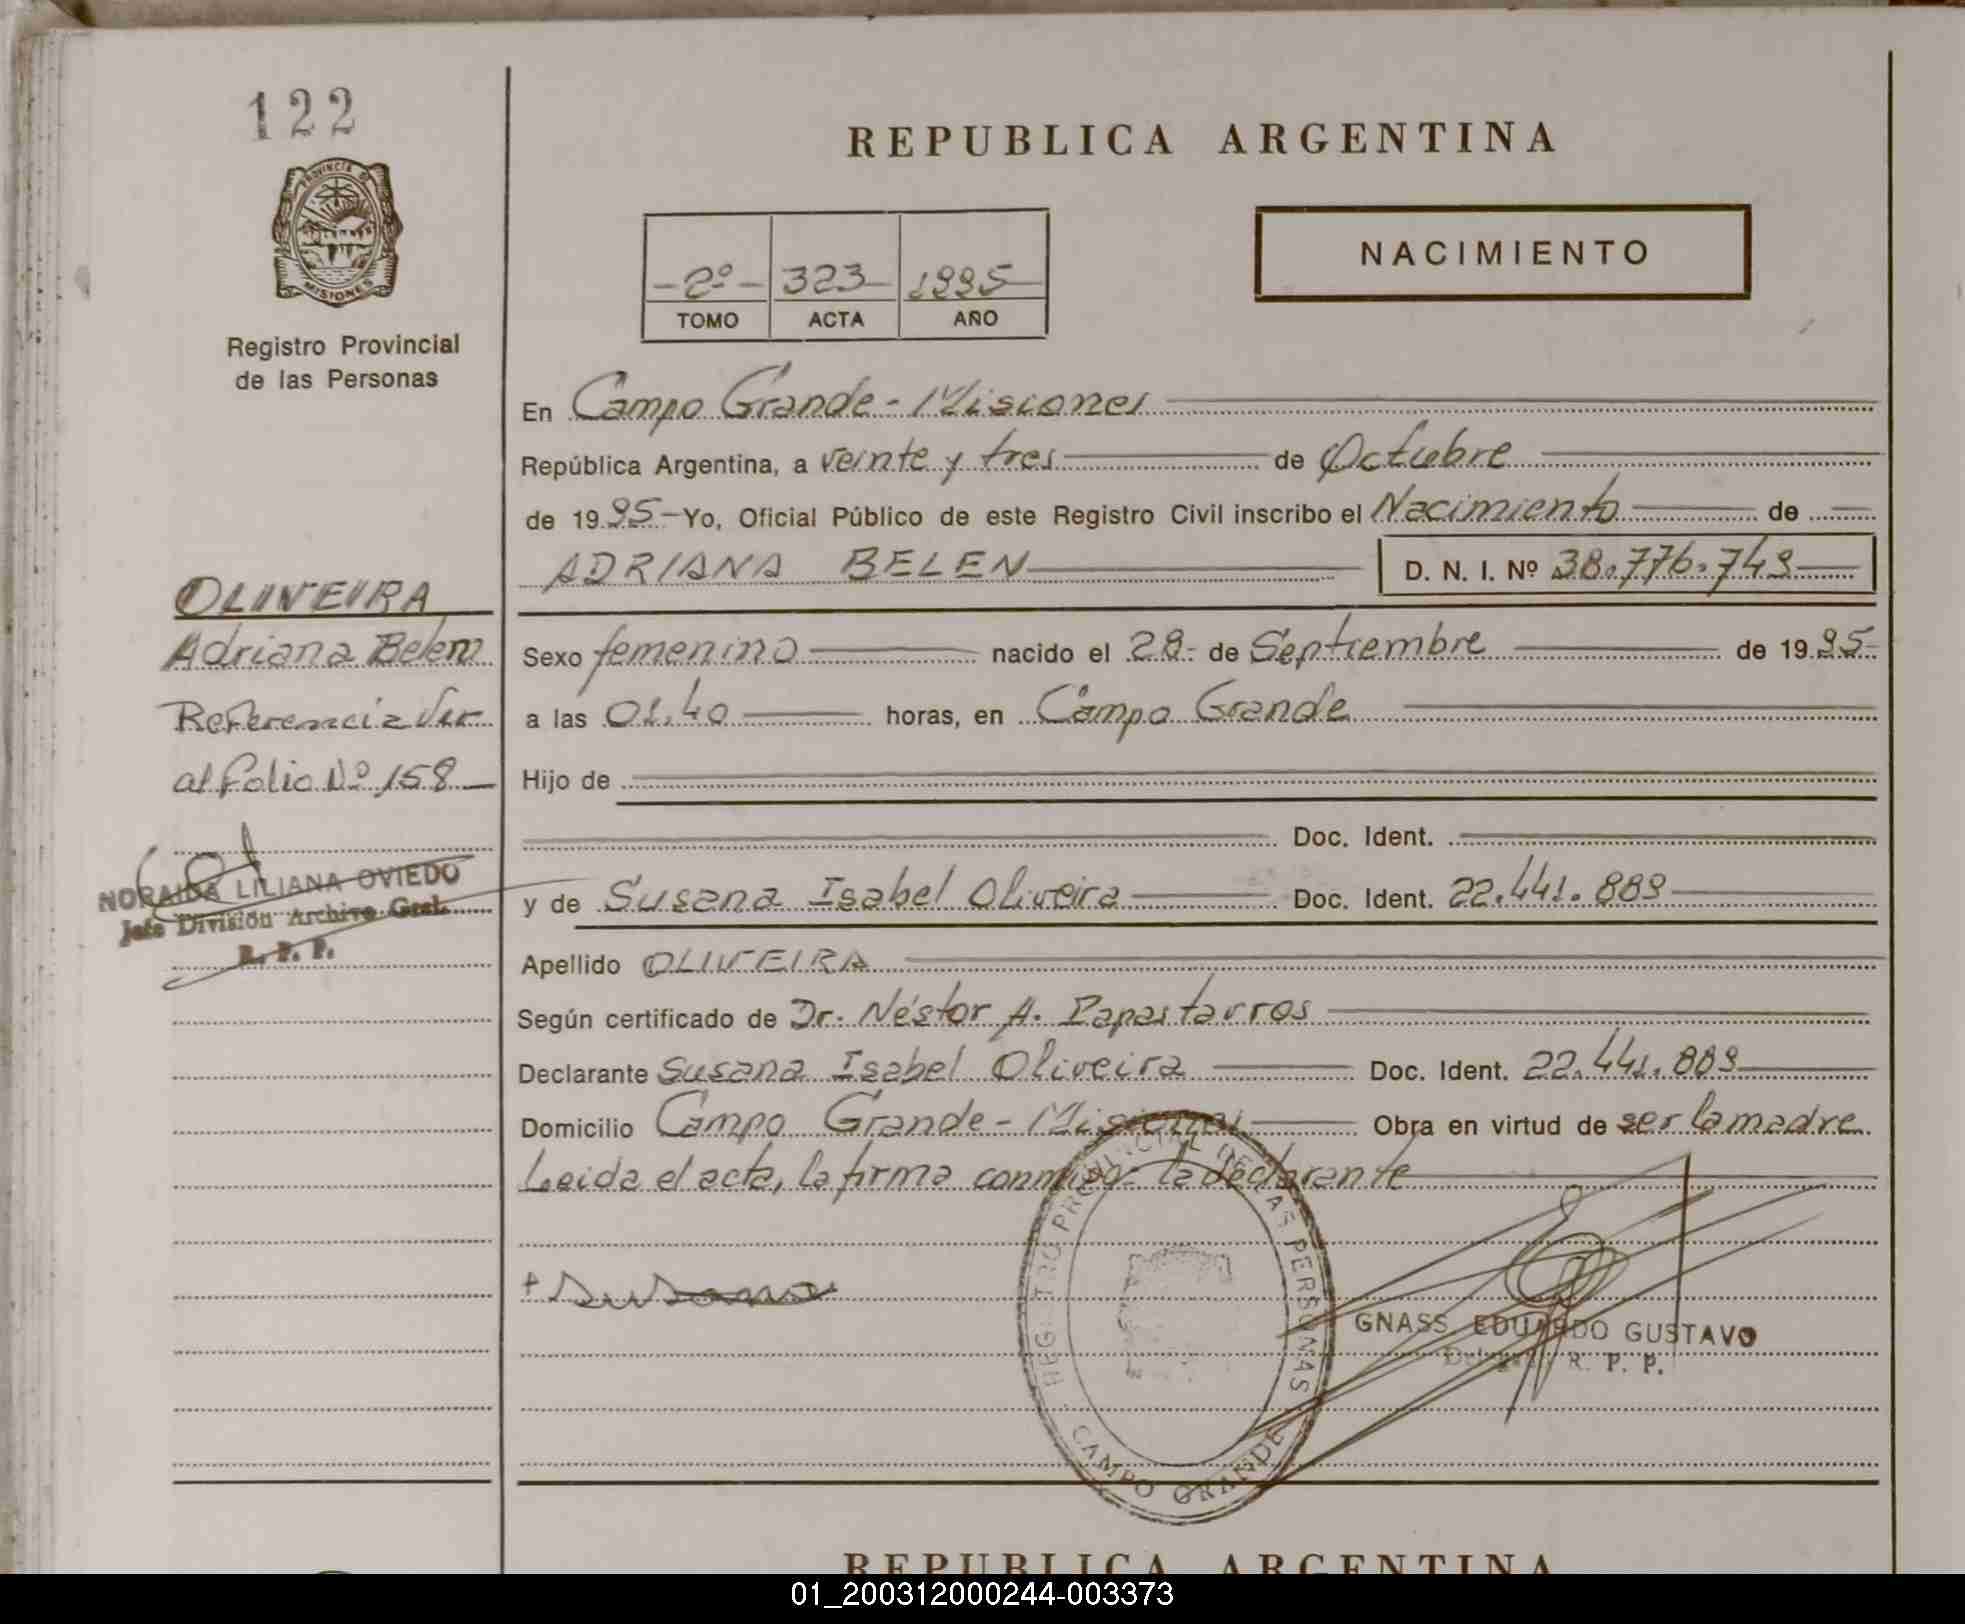 122
REPUBLICA ARGENTINA
PROVINCIA DE
MISIONES
Registro Provincial
de las Personas
-2º- 323 1995
TOMO ACTA AÑO
NACIMIENTO
En Campo Grande - Misiones
República Argentina, a veinte y tres de Octubre
de 1995 - Yo, Oficial Público de este Registro Civil inscribo el Nacimiento de
ADRIANA BELEN D. N. I. Nº 38.776.749
OLIVEIRA
Adriana Belen
Referencia Ver
al folio Nº 158
NORAIDA LILIANA OVIEDO
Jefe División Archivo Gral.
R. P. P.
Sexo femenino nacido el 28- de Septiembre de 1995-
a las 01.40 horas, en Campo Grande
Hijo de
Doc. Ident.
y de Susana Isabel Oliveira Doc. Ident. 22.441.889
Apellido OLIVEIRA
Según certificado de Dr. Néstor A. Papastavros
Declarante Susana Isabel Oliveira Doc. Ident. 22.441.889
Domicilio Campo Grande - Misiones Obra en virtud de ser la madre
Leida el acta, la firma conmigo: la declarante
+ Susana
REGISTRO PROVINCIAL DE LAS PERSONAS
CAMPO GRANDE
GNASS EDUARDO GUSTAVO
R. P. P.
REPUBLICA ARGENTINA
01_200312000244-003373